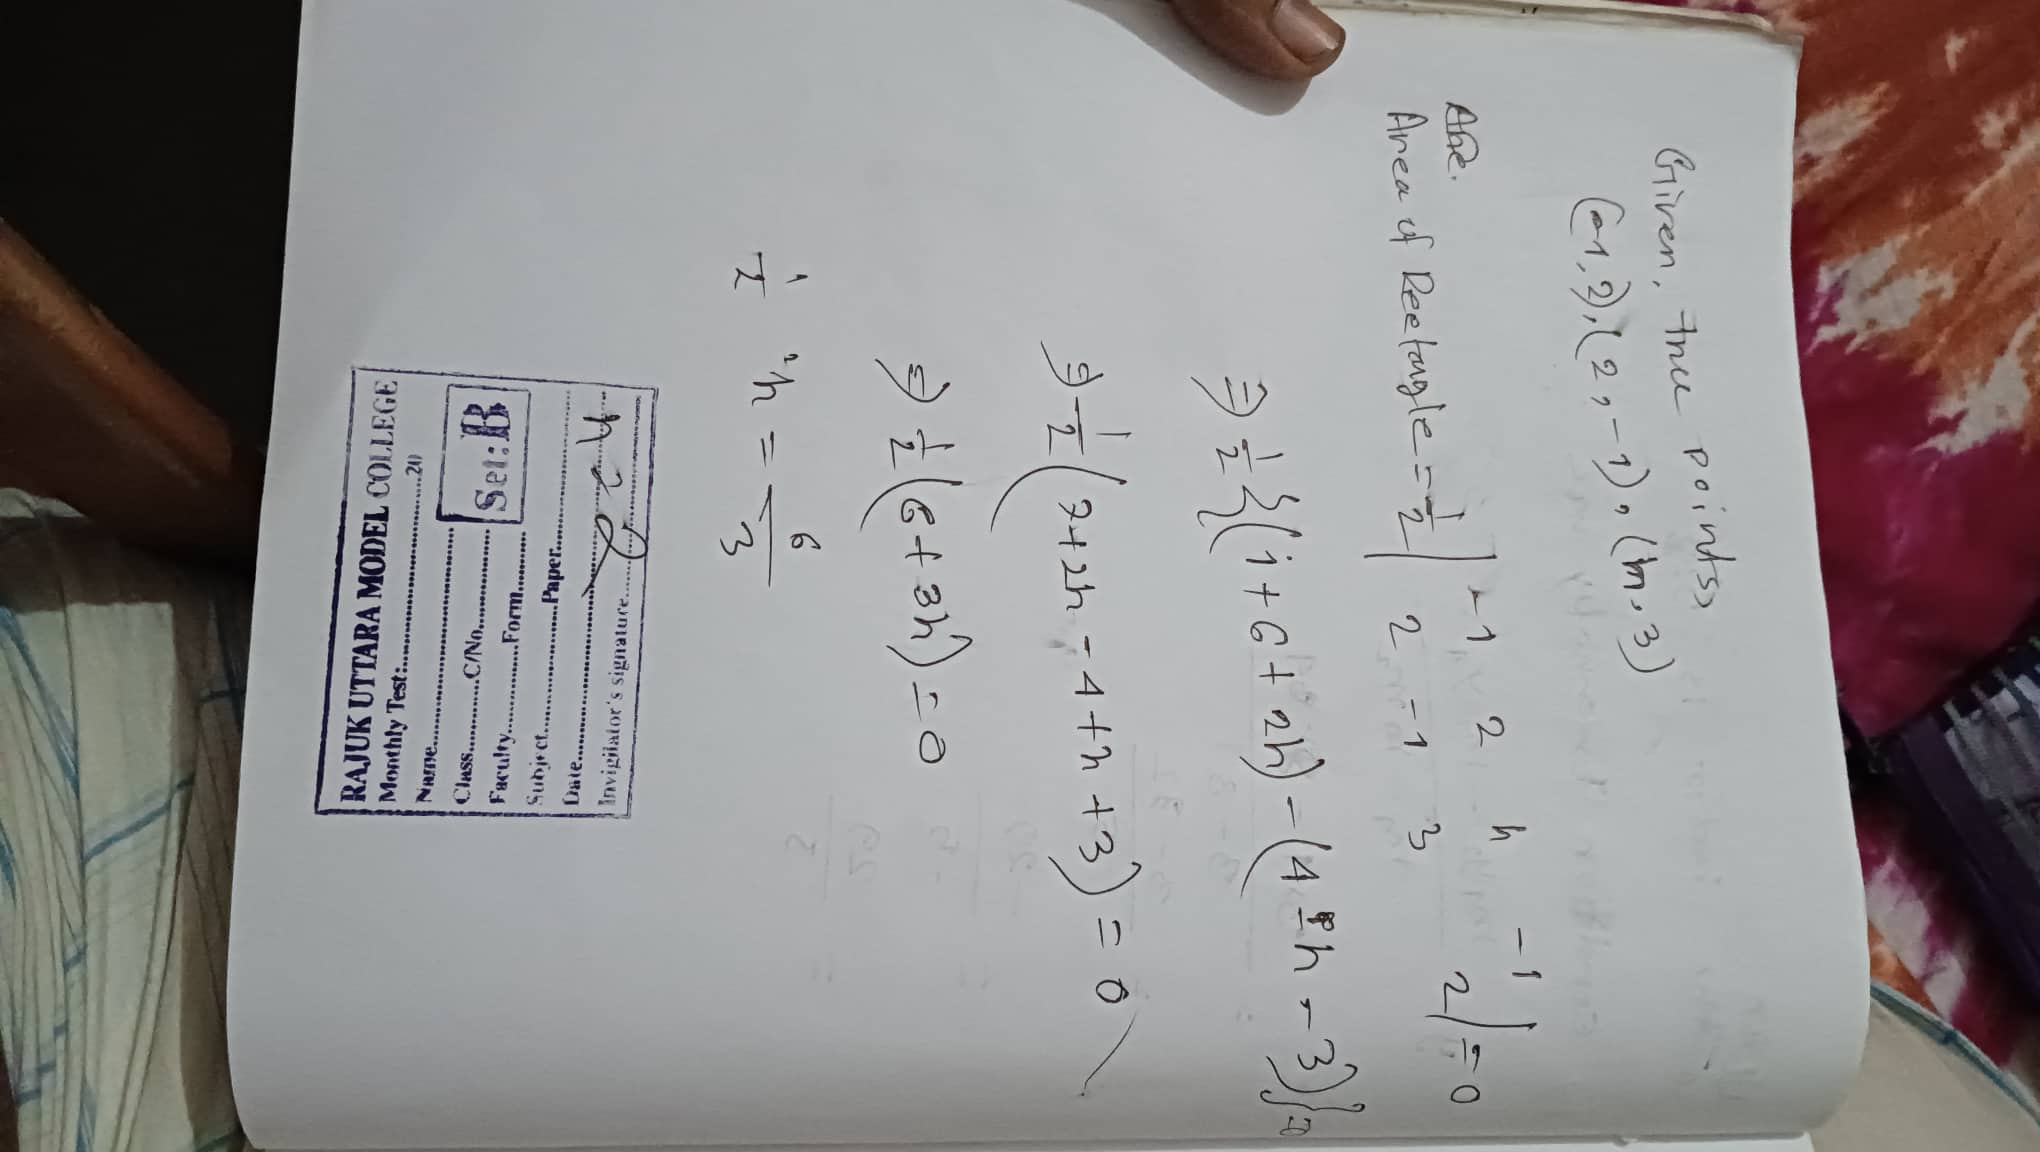 Given, three points,
(-1, 2), (2, -1), (h, 3)
Are.
Area of Reetangle = 1/2 | -1 2 h -1
2 -1 3 2 | = 0
⇒ 1/2 {(1 + 6 + 2h) - (4 - h - 3)} = 0
⇒ 1/2 (7 + 2h - 4 + h + 3) = 0
⇒ 1/2 (6 + 3h) = 0
h = - 6/3
RAJUK UTTARA MODEL COLLEGE
Monthly Test:....................20
Name....................
Class..........C/No..........
Set: B
Faculty..........Form..........
Subject..........Paper..........
Date..........
Invigilator's signature..........